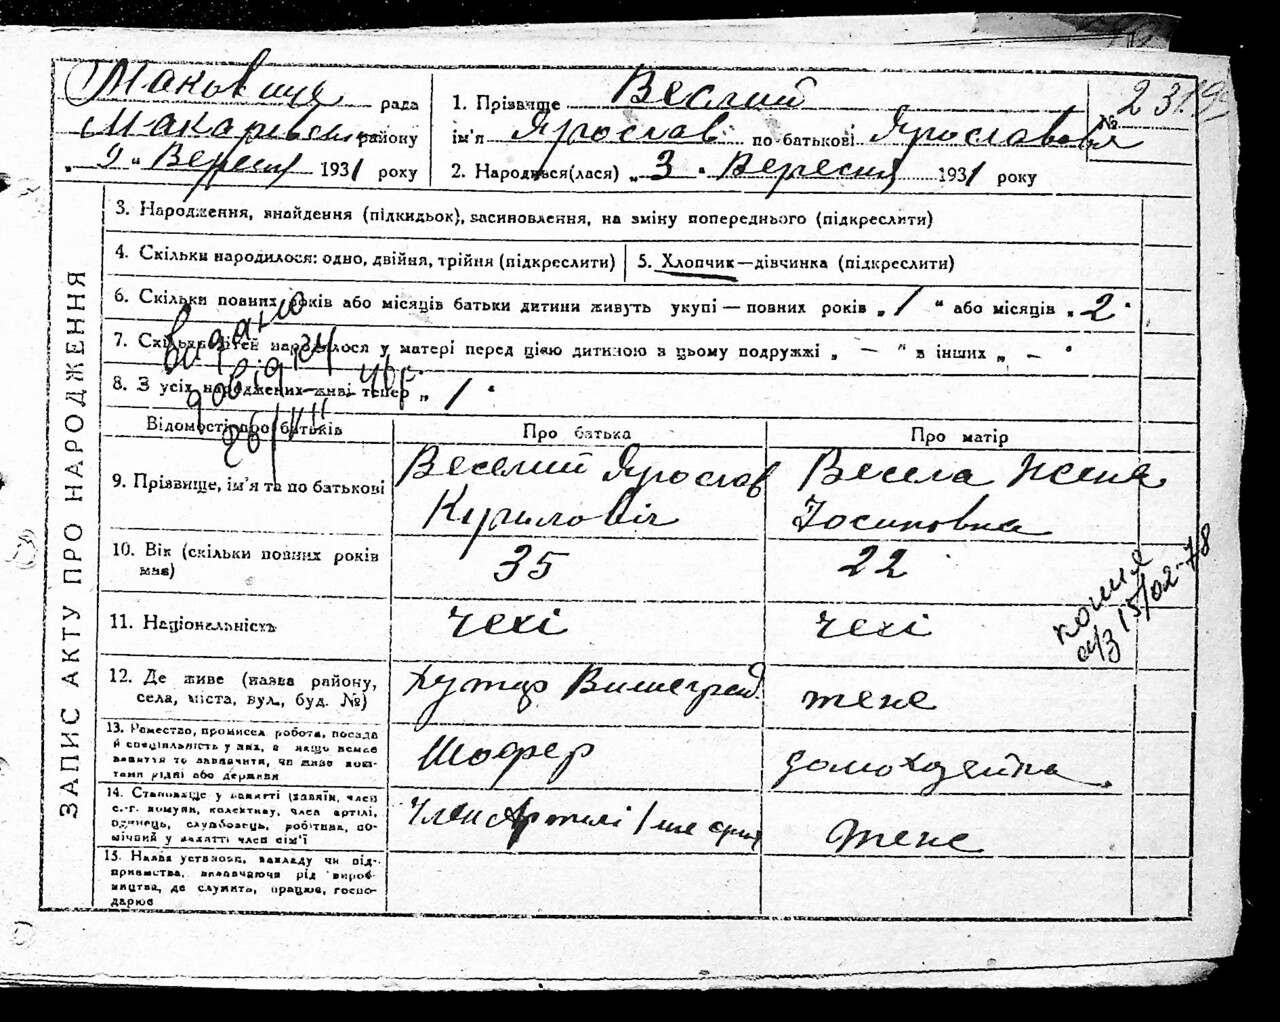 Маковище рада
Макарівськ району
„ 9 „ Вересня 1931 року
1. Прізвище Веслий
ім'я Ярослав по батькові Ярославовия
2. Народився(лася) „ 3 „ Вересня 1931 року
№ 23
ЗАПИС АКТУ ПРО НАРОДЖЕННЯ
3. Народження, знайдення (підкидьок), засиновлення, на зміну попереднього (підкреслити)
4. Скільки народилося: одно, двійня, трійня (підкреслити)
5. Хлопчик—дівчинка (підкреслити)
6. Скільки повних років або місяців батьки дитини живуть укупі — повних років „ 1 “ або місяців „ 2 “
7. Скільки дітей народилося у матері перед цією дитиною в цьому подружжі „ — “ в інших „ — “
8. З усіх народжених—живі тепер „ 1 “
видано
довідку
26/VII
Відомості про батьків
Про батька
Про матір
9. Прізвище, ім'я та по батькові
Веселий Ярослав
Кирилович
Весела Женя
Йосиповна
10. Вік (скільки повних років
має)
35
22
11. Національність
чехі
чехі
копия
15/02-78
12. Де живе (назва району,
села, міста, вул., буд. №)
Хутор Вишеград
теже
13. Ремество, промисел робота, посада
й спеціяльність у них, а якщо немає
заняття то зазначити, чи живе кош-
тами рідні або держави
Шофер
домохозяйка
14. Становище у занятті (хазяїн, член
с.-г. комуни, колективу, член артілі,
одинець, службовець, робітник, по-
мічний у занятті член сім'ї
Член Артилі
теже
15. Назва установи, закладу чи під-
приємства, визначаючи рід вироб-
ництва, де служить, працює, госпо-
дарює